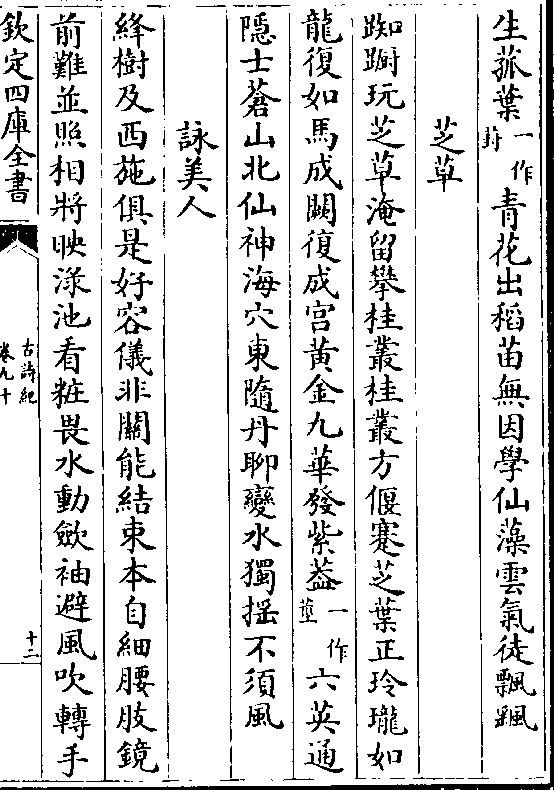 生菰葉一作葑青花出稻苗無因學仙藻雲氣徒飄颻
芝草
踟蹰玩芝草淹留攀桂叢桂叢方偃蹇芝葉正玲瓏如
龍復如馬成闕復成宮黃金九華發紫葢一作莖六英通
隠士蒼山北仙神海穴東隨丹聊變水獨揺不須風
詠美人
絳樹及西施俱是好容儀非關能結束本自細腰肢鏡
前難並照相將映渌池看粧畏水動斂袖避風吹轉手
欽定四庫全書
古詩紀
卷九十
十二